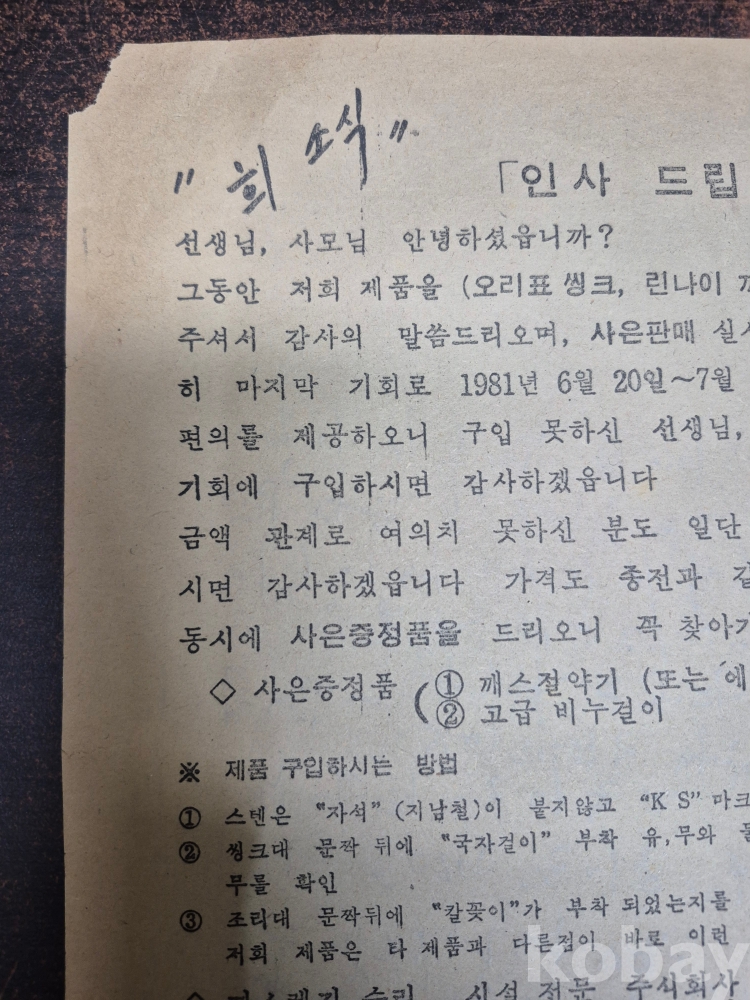 "희 소식"
「인사 드립
선생님, 사모님 안녕하셨읍니까?
그동안 저희 제품을 (오리표 씽크, 린나이
주셔서 감사의 말씀드리오며, 사은판매 실시
히 마지막 기회로 1981년 6월 20일~7월
편의를 제공하오니 구입 못하신 선생님,
기회에 구입하시면 감사하겠읍니다
금액 관계로 여의치 못하신 분도 일단
시면 감사하겠읍니다 가격도 종전과
동시에 사은증정품을 드리오니 꼭 찾아
◇ 사은증정품 (① 깨스절약기 (또는 에
② 고급 비누걸이
※ 제품 구입하시는 방법
① 스텐은 "자석" (지남철)이 붙지않고 "K S" 마크
② 씽크대 문짝 뒤에 "국자걸이" 부착 유,무와
무를 확인
③ 조리대 문짝뒤에 "칼꽂이"가 부착 되었는지를
저희 제품은 타 제품과 다른점이 바로 이런
수리 시설 전문 주식회사
kobay